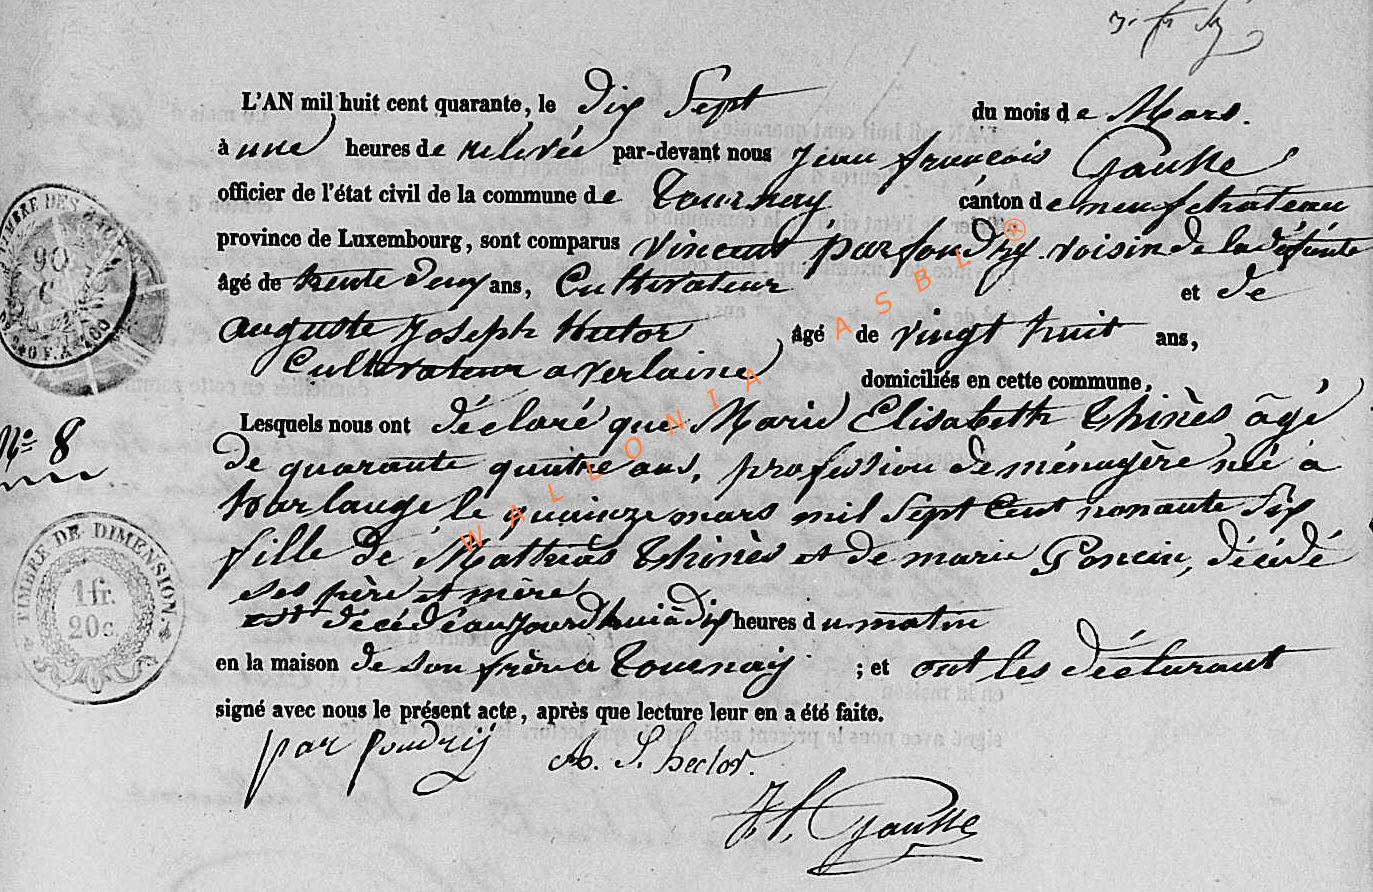 L'AN mil huit cent quarante, le dix Sept du mois de Mars.
à une heures de relevée par-devant nous Jean françois Gausse
officier de l'état civil de la commune de Tournay canton de neufchateau
province de Luxembourg, sont comparus vincent parfondry voisin de la défunte
âgé de trente deux ans, Cultivateur et de
auguste Joseph Hector âgé de vingt huit ans,
Cultivateur a verlaine domiciliés en cette commune,
Lesquels nous ont déclaré que Marie Elisabeth Thinès âgé
de quarante quatre ans, profession de ménagère née à
harlange le quainze mars mil Sept Cent nonante Six
fille de Mathias Thinès et de marie Poncin, décédé
ses père et mère
est décédé aujourd'hui à dix heures du matin
en la maison de son frère a Tournay ; et ont les déclarant
signé avec nous le présent acte, après que lecture leur en a été faite.
parfondrÿ A. J. hector.
J. f. Gausse
N° 8
TIMBRE DE DIMENSION.
1 fr.
20 c.
WALLONIA ASBL ®